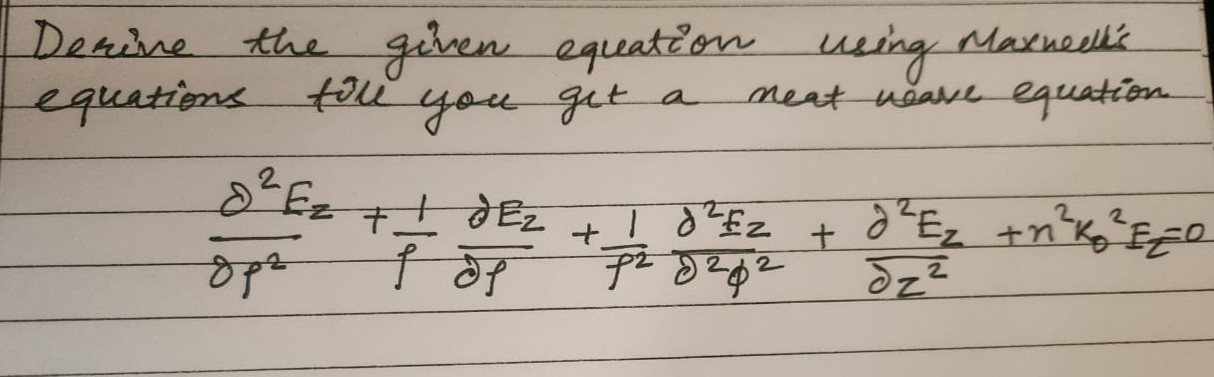 Derive the given equation using Maxwell's
equations till you get a neat wave equation
∂²E_z/∂ρ² + 1/ρ ∂E_z/∂ρ + 1/ρ² ∂²E_z/∂²φ² + ∂²E_z/∂z² + n²K₀²E_z=0